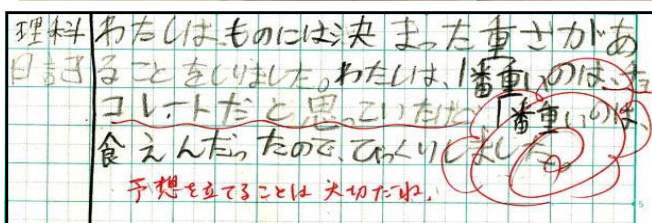 理科日記
わたしは、ものには決まった重さがあ
ることをしりました。わたしは、1番重いのは、チョ
コレートだと思っていたけど、1番重いのは、
食えんだったので、びっくりしました。
予想を立てることは大切だね。